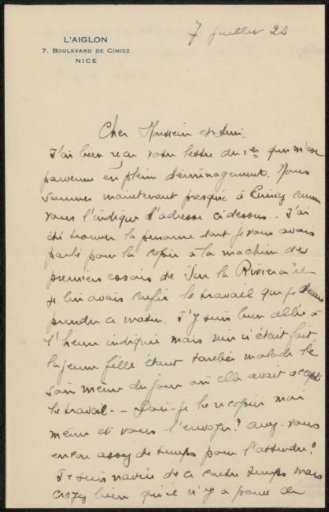 L'AIGLON
7. BOULEVARD DE CIMIEZ
NICE
7 juillet 20
Cher Monsieur et Ami.
J'ai bien reçu votre lettre du 1er qui m'est
parvenue en plein déménagement. Nous
sommes maintenant presque à Cimiez comme
vous l'indique l'adresse ci dessus. J'ai
été trouver la personne dont je vous avais
parlé pour la copie à la machine des
premiers essais de Sur la Riviera et
je lui avais confié le travail que je devais
prendre ce matin. J'y suis bien allée à
l'heure indiquée mais rien n'était fait
la jeune fille étant tombée malade le
soir même du jour où elle avait accepté
le travail -- Dois-je le recopier moi
même et vous l'envoyer? avez-vous
encore assez de temps pour l'attendre?
Je suis navrée de ce contre temps mais
croyez bien qu'il n'y a pas de